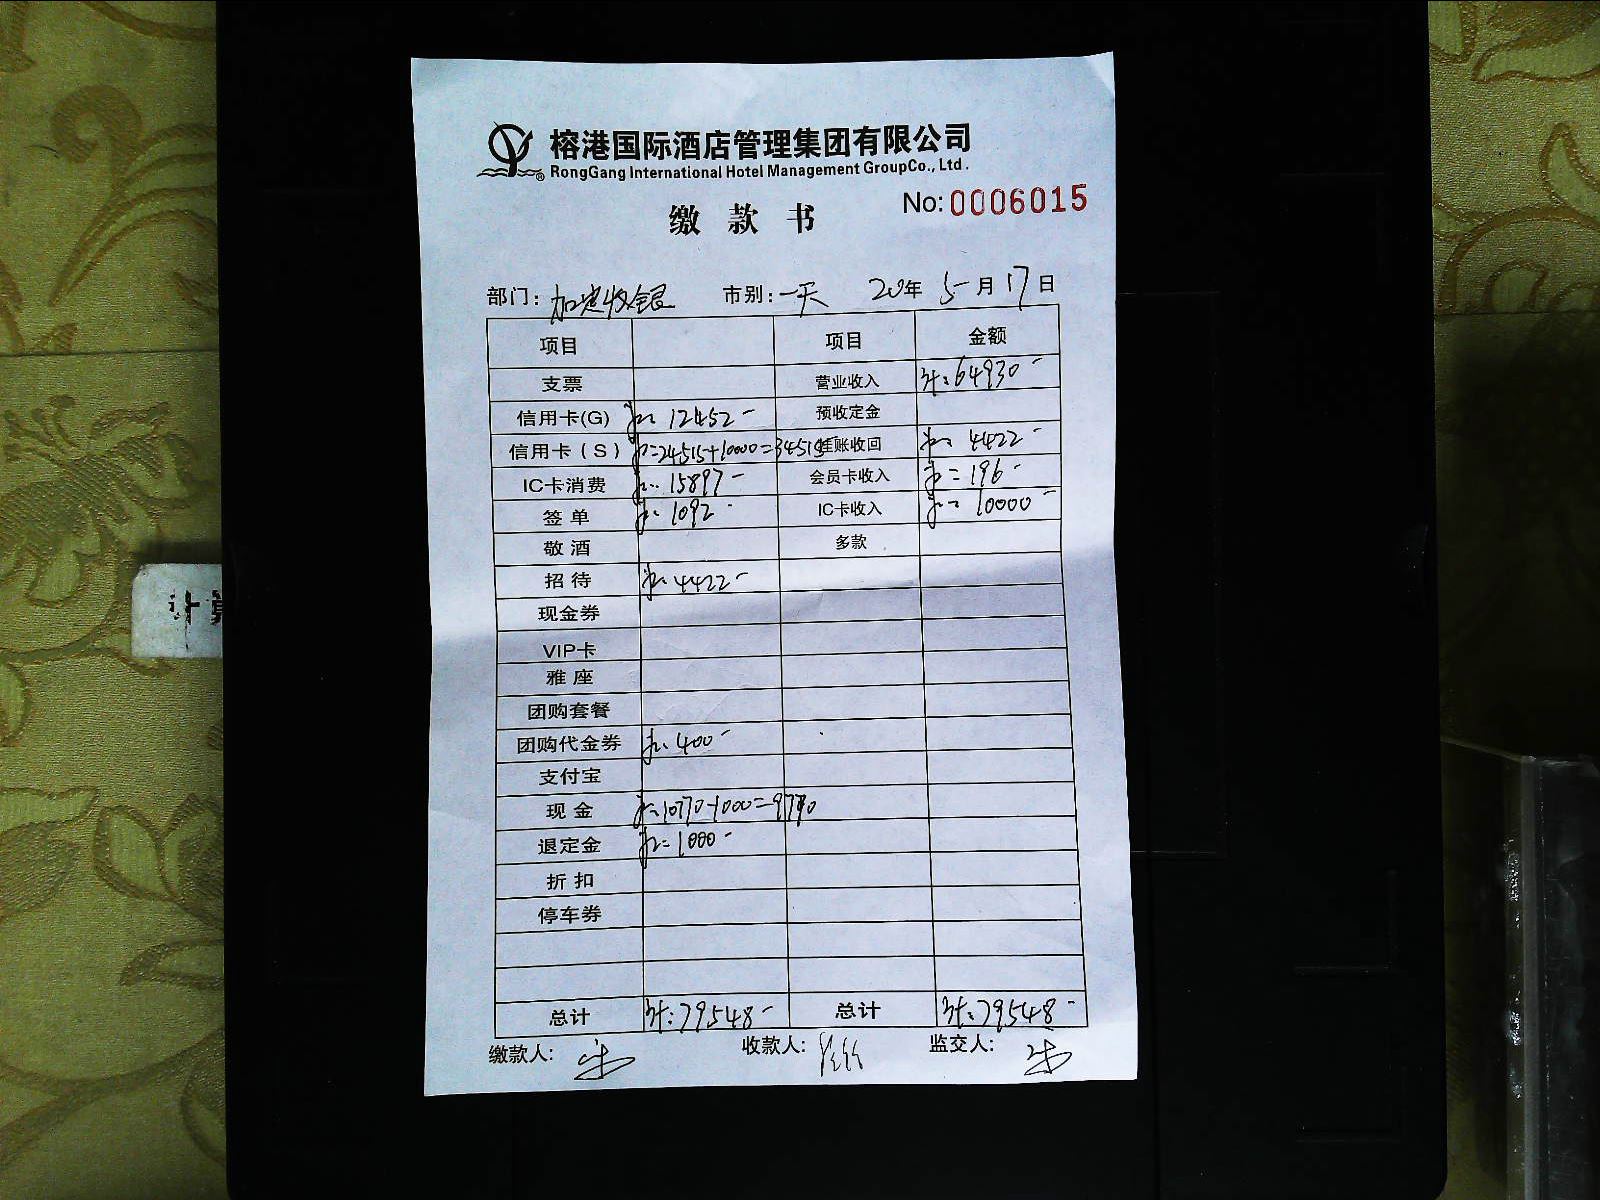 榕港国际酒店管理集团有限公司
RongGang International Hotel Management GroupCo., Ltd.
No:0006015
缴 款 书
部门: 收银 市别: 一天 20 年 5 月 17 日
项目 项目 金额
支票 营业收入 计:64930-
信用卡(G) 12452- 预收定金
信用卡(S) =24515+10000=34515 挂账收回 4422-
IC卡消费 15897- 会员卡收入 =196-
签 单 1092- IC卡收入 =10000-
敬 酒 多款
招 待 4422-
现金券
VIP卡
雅 座
团购套餐
团购代金券 400-
支付宝
现 金 =10770-1000=9770
退定金 =1000-
折 扣
停车券
总计 计:79548- 总计 计:79548-
缴款人: 收款人: 监交人:
计算